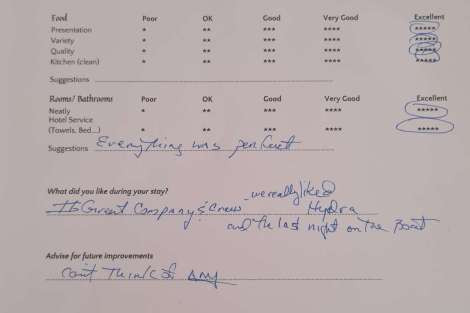 Food Poor OK Good Very Good Excellent
Presentation * ** *** **** *****
Variety * ** *** **** *****
Quality * ** *** **** *****
Kitchen (clean) * ** *** **** *****
Suggestions
Rooms/ Bathrooms Poor OK Good Very Good Excellent
Neatly * ** *** **** *****
Hotel Service
(Towels. Bed...) * ** *** **** *****
Suggestions Everything was perfect
What did you like during your stay?
we really liked
Great Company & Crew Hydra
and the last night on the Boat
Advise for future improvements
Can't Think of Any